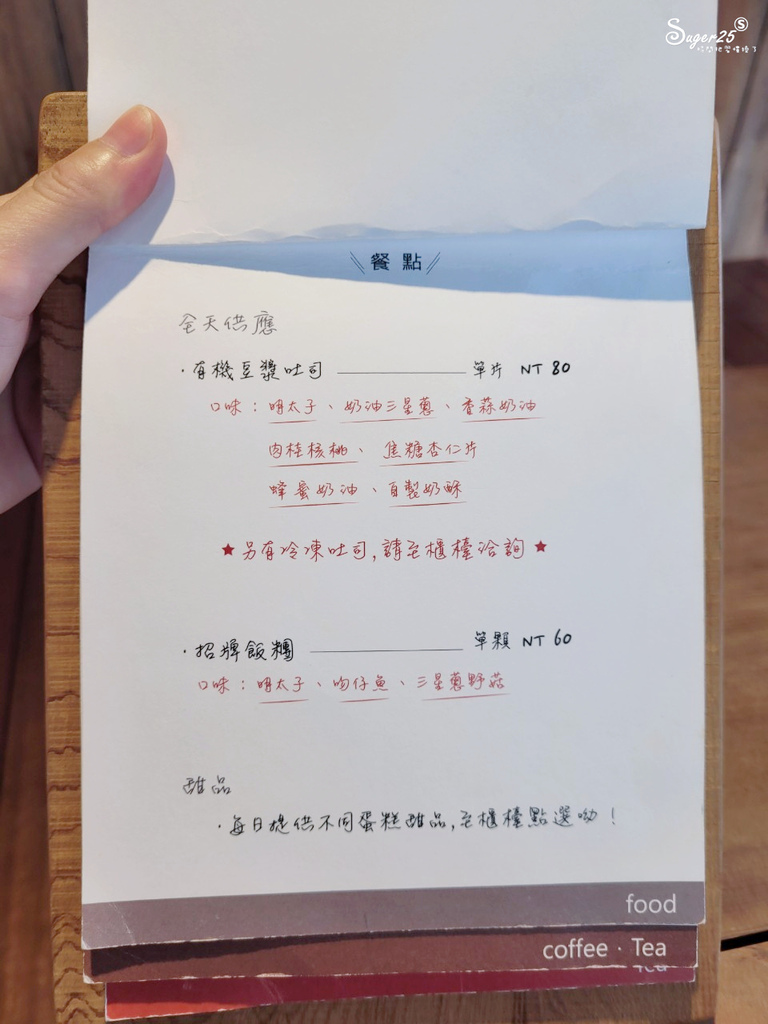 Suger25 S
餐點
全天供應
·有機豆漿吐司 單片 NT 80
口味：明太子、奶油三星蔥、香蒜奶油
肉桂核桃、焦糖杏仁片
蜂蜜奶油、自製奶酥
★另有冷凍吐司,請至櫃檯洽詢★
·招牌飯糰 單顆 NT 60
口味：明太子、吻仔魚、三星蔥野菇
甜品
·每日提供不同蛋糕甜品,至櫃檯點選呦！
food
coffee · Tea